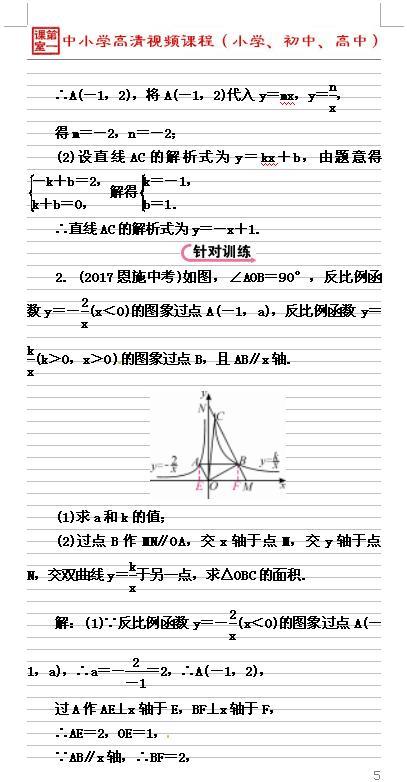 课第室一 中小学高清视频课程（小学、初中、高中）
∴A(－1，2)，将 A(－1，2)代入 y＝mx，y＝n/x，
得 m＝－2，n＝－2；
(2)设直线 AC 的解析式为 y＝kx＋b，由题意得
{－k＋b＝2，k＋b＝0， 解得{k＝－1，b＝1.
∴直线 AC 的解析式为 y＝－x＋1.
针对训练
2.（2017 恩施中考)如图，∠AOB＝90°，反比例函
数 y＝－2/x(x＜0)的图象过点 A(－1，a)，反比例函数 y＝
k/x(k＞0，x＞0)的图象过点 B，且 AB∥x 轴.
y
N
C
y=-2/x A B y=k/x
E O F M x
(1)求 a 和 k 的值；
(2)过点 B 作 MN∥OA，交 x 轴于点 M，交 y 轴于点
N，交双曲线 y＝k/x于另一点，求△OBC 的面积.
解：(1)∵反比例函数 y＝－2/x(x＜0)的图象过点 A(－
1，a)，∴a＝－2/－1＝2，∴A(－1，2)，
过 A 作 AE⊥x 轴于 E，BF⊥x 轴于 F，
∴AE＝2，OE＝1，
∵AB∥x 轴，∴BF＝2，
5